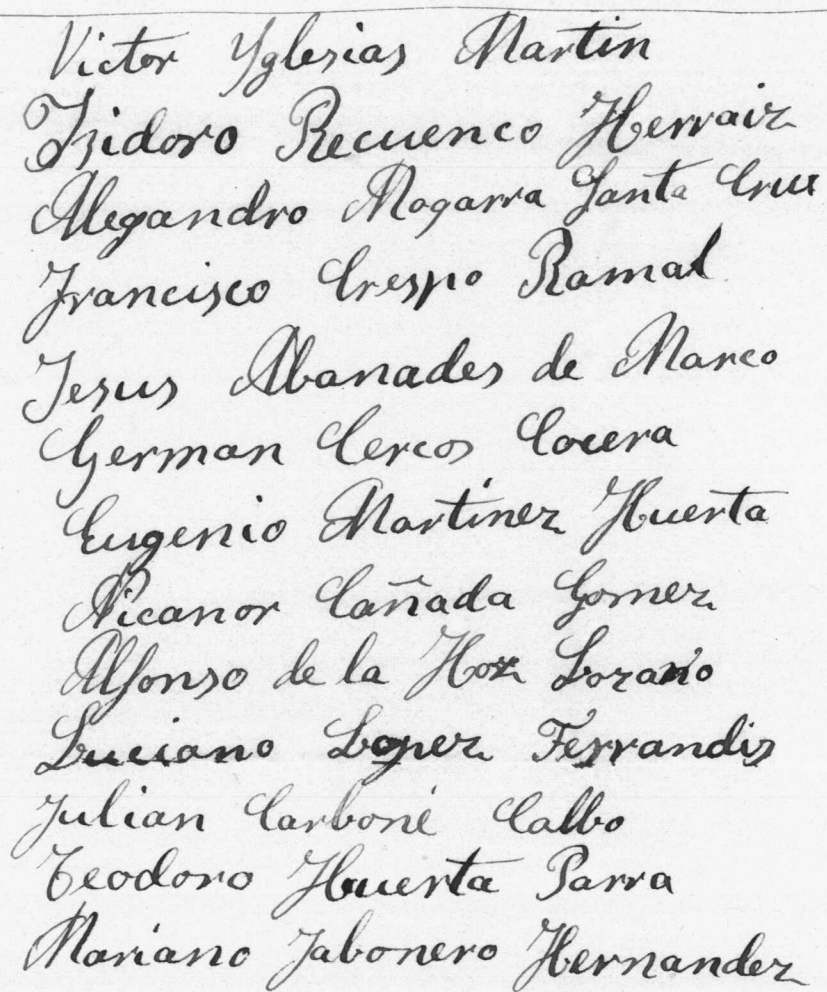 Victor Yglesias Martin
Isidoro Recuenco Herraiz
Alegandro Mogarra Santa Cruz
Francisco Crespo Ramal
Jesus Abanades de Marco
German Cercos Cocera
Eugenio Martínez Huerta
Nicanor Cañada Gomez
Alfonso de la Hoz Lozano
Luciano Lopez Ferrandis
Julian Carboné Calbo
Teodoro Huerta Parra
Mariano Jabonero Hernandez